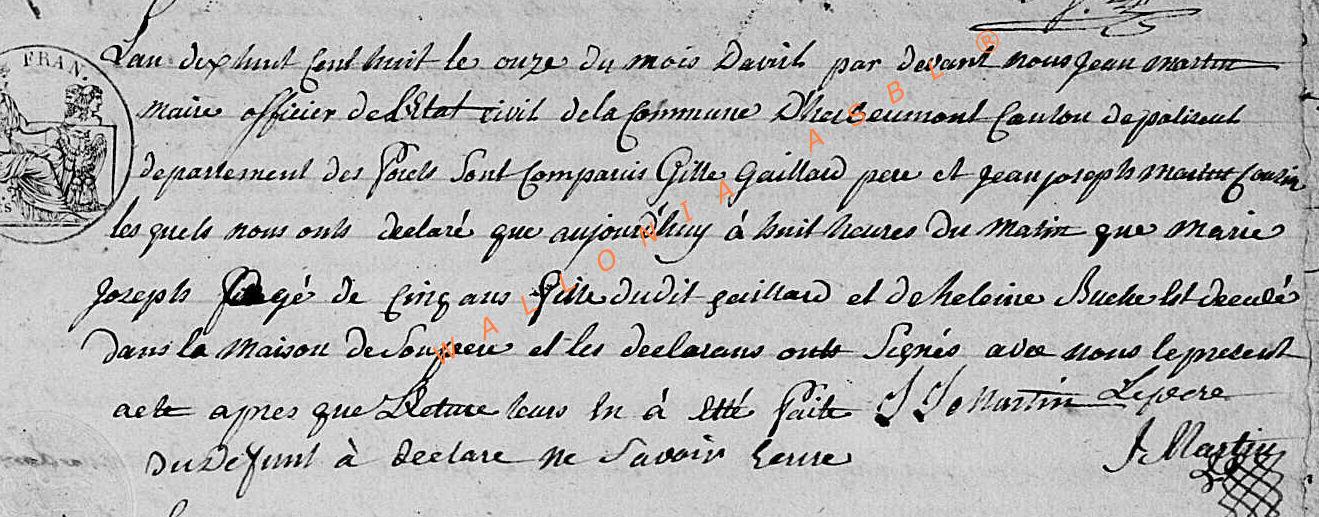 FRAN.
L'an dix huit Cent huit le onze du mois Davril par devant nous Jean martin
maire officier de L'Etat civil de la Commune D'herbeumont Canton depaliseul
departement des forets Sont Comparus Gille gaillard pere et Jean joseph martin Couzin
les quels nous onts declaré que aujourd'huy à huit heures du matin que marie
joseph agé de Cinq ans fille dudit gaillard et de heleine Est decedé
dans la maison de Son pere et les declarans onts Signés avec nous le present
acte apres que Lecture leurs En à Etté faite J J Martin Le pere
du Defunt à declare ne Savoir Ecrire J Martin
WALLONIA ASBL ®